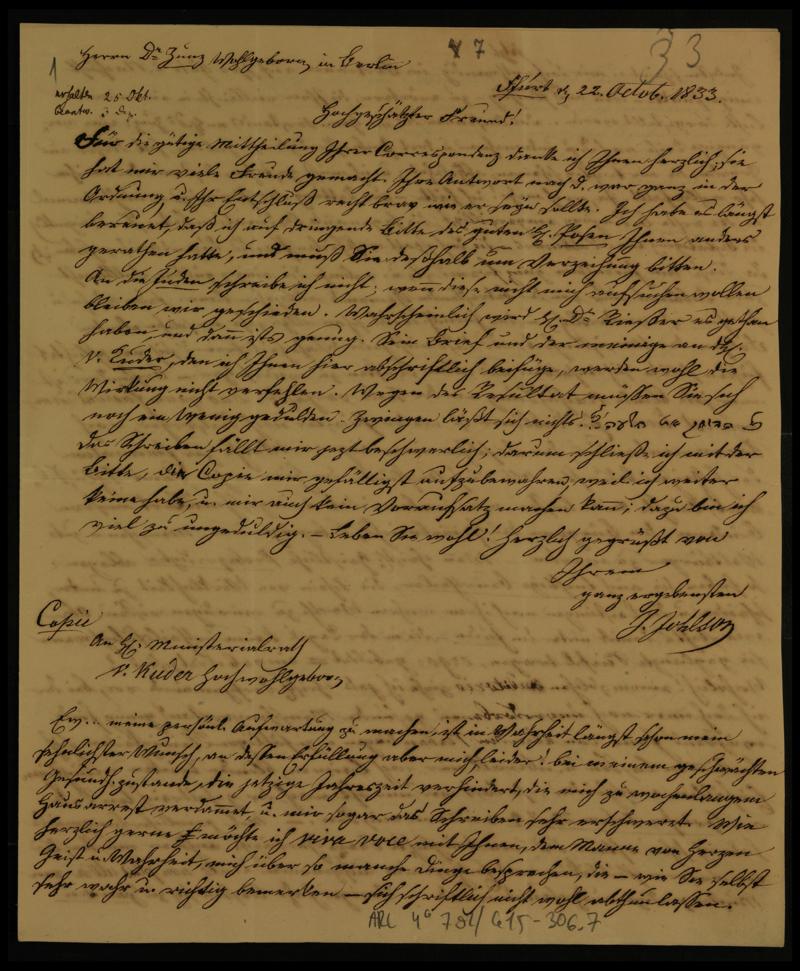 7
33
1
Herrn Dr. Zunz Wohlgeborn in Berlin
erhalten 25 Okt.
beantw.
Ffurt d. 22. Octob. 1833.
Hochgeschätzter Freund!
Für die gütige Mittheilung Ihrer Correspondenz danke ich Ihnen herzlich; sie
hat mir viele Freude gemacht. Ihre Antwort nach D. war ganz in der
Ordnung u. Ihr Entschluß recht brav wie er seyn sollte. Ich habe es längst
bereuet, daß ich auf dringende Bitte des guten H. Posen Ihnen anders
gerathen hatte, und muß Sie deßhalb um Verzeihung bitten.
An die Juden schreibe ich nicht; wenn diese nicht mich aufsuchen wollen
bleiben wir geschieden. Wahrscheinlich wird H. Dr. Riesser es gethan
haben, und dann ists genug. Sein Brief und der meinige an H.
v. Kuder, den ich Ihnen hier abschriftlich beifüge, werden wohl die
Wirkung nicht verfehlen. Wegen des Resultat müssen Sie sich
noch ein wenig gedulden. Zwingen läßt sich nichts.
Das Schreiben fällt mir jezt beschwerlich; darum schließe ich mit der
Bitte, die Copie mir gefälligst aufzubewahren, weil ich weiter
keine habe, u. mir auch kein Voraufsatz machen kann; dazu bin ich
viel zu ungeduldig. – Leben Sie wohl! Herzlich gegrüßt von
Ihrem
ganz ergebensten
J. Johlson
Copie
An H. Ministerialrath
v. Kuder Hochwohlgeborn
Ew... meine persönl. Aufwartung zu machen, ist in Wahrheit längst schon mein
sehnlichster Wunsch, an dessen Erfüllung aber mich leider! bei meinem geschwächten
Gesundh.zustande, die jetzige Jahreszeit verhindert, die mich zu wochenlangem
Hausarrest verdammet, u. mir sogar das Schreiben sehr erschweret. Wie
herzlich gerne möchte ich viva voce mit Ihnen, dem Manne von Herzen
Geist u. Wahrheit, mich über so manche Dinge besprechen, die – wie Sie selbst
sehr wahr u. richtig bemerken – sich schriftlich nicht wohl abthun lassen.
ARC 4° 792/G15-306.7